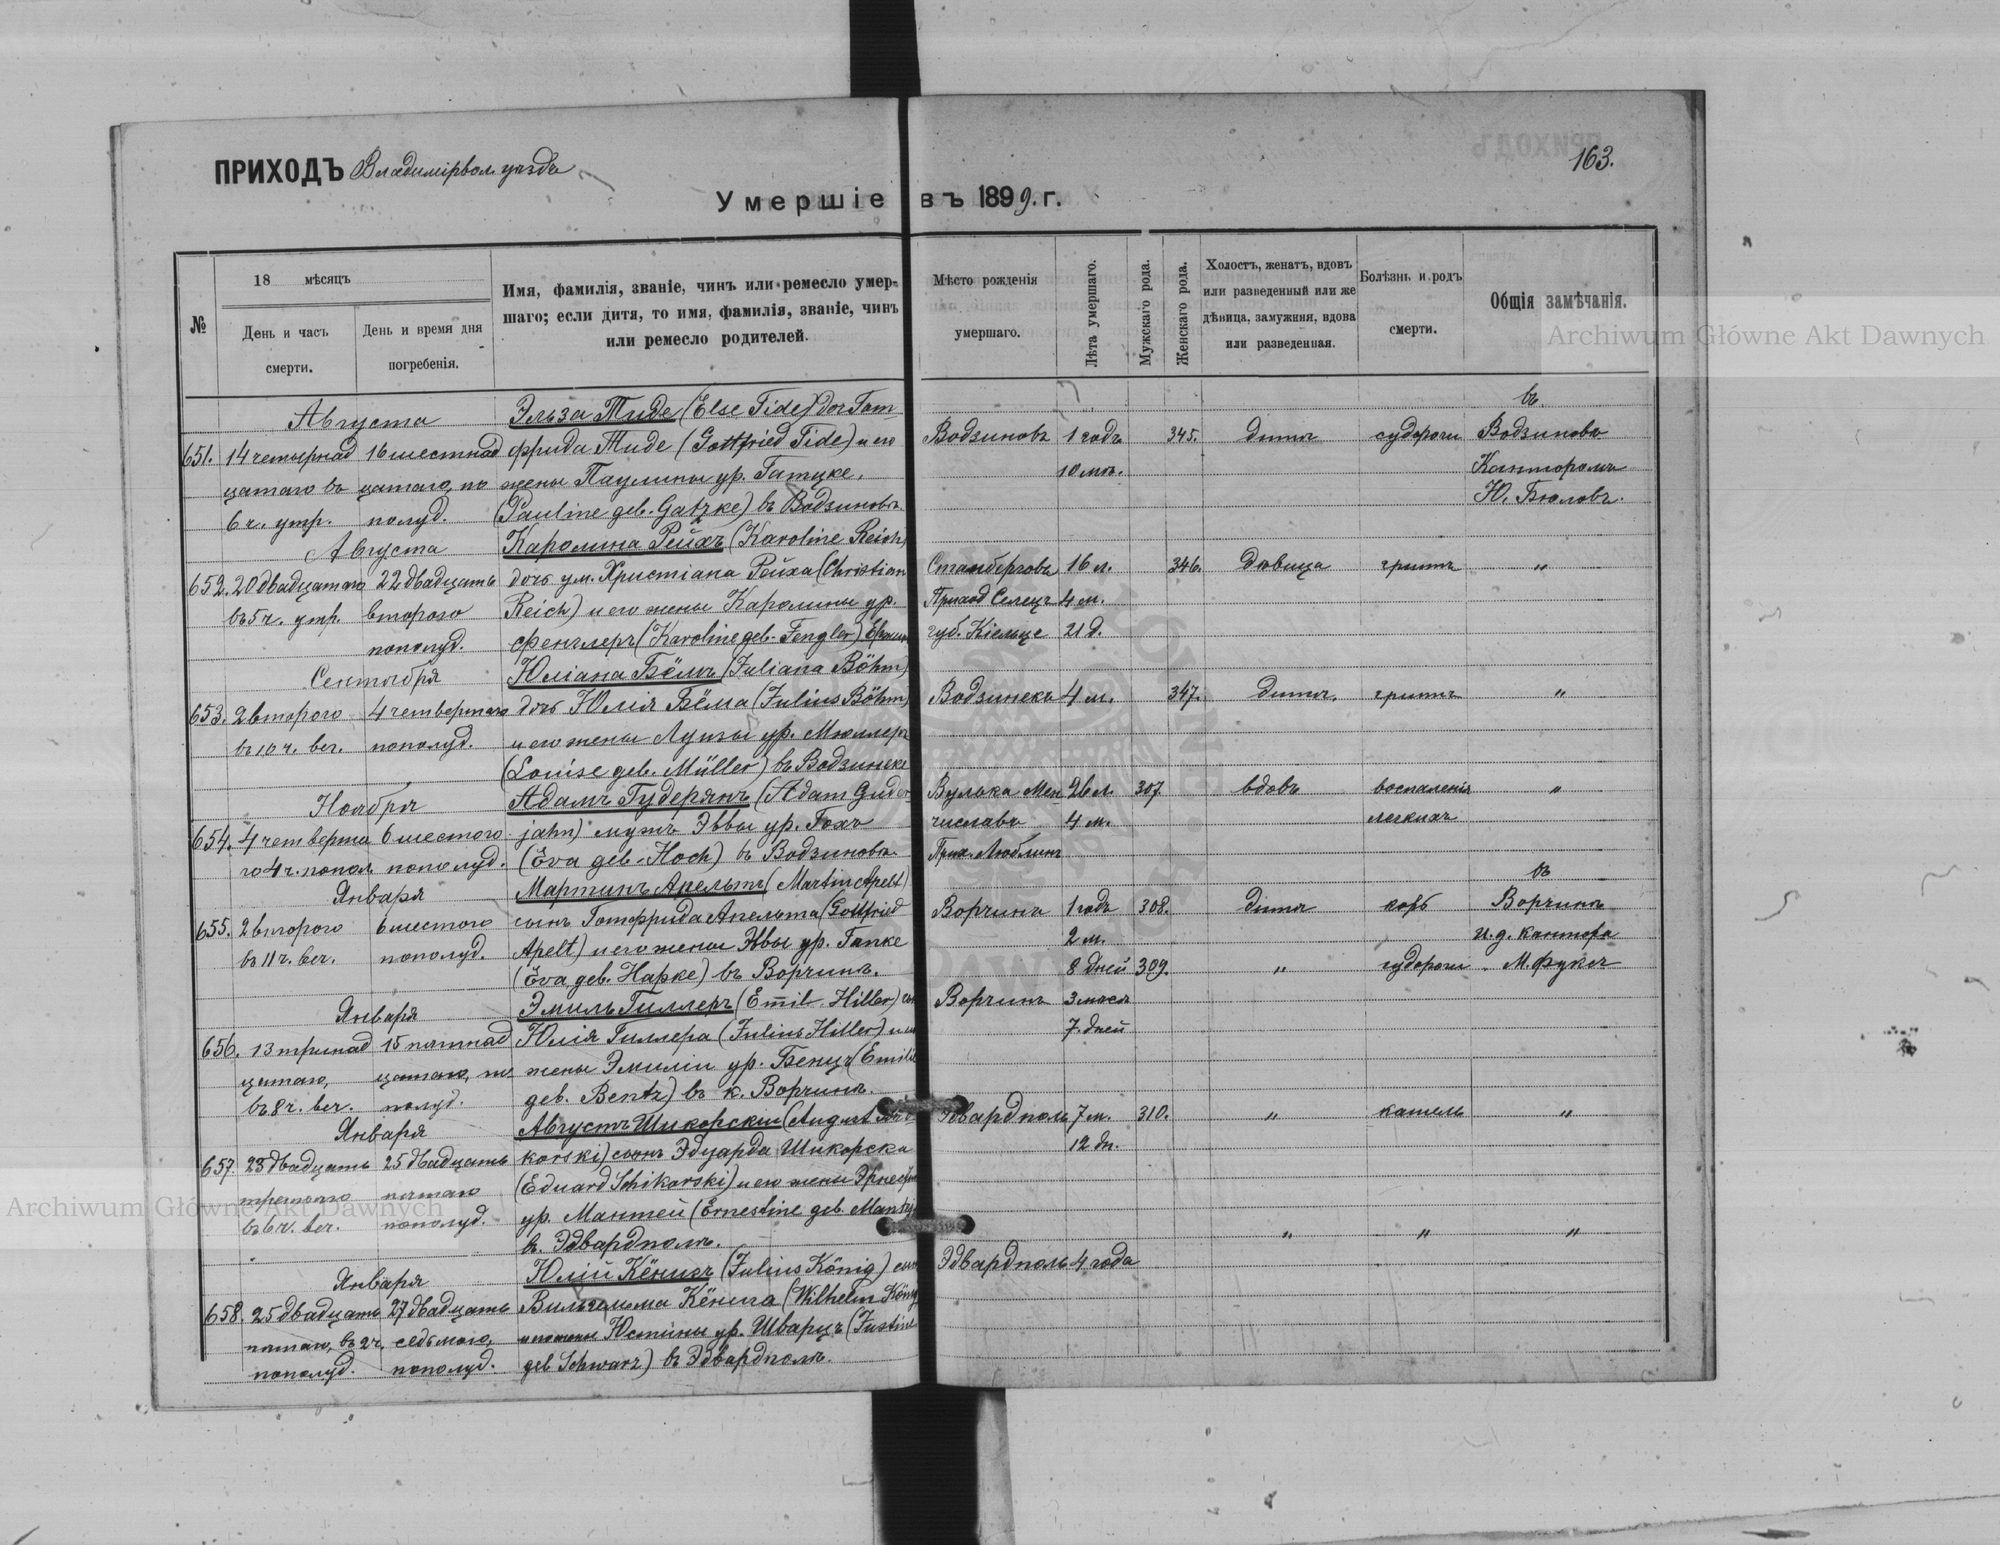 ПРИХОДЪ Владимірвол. уѣздъ
163.
Умершіе въ 1899. г.
№
18 мѣсяцъ
День и часъ смерти.
День и время дня погребенія.
Имя, фамилія, званіе, чинъ или ремесло умер-
шаго; если дитя, то имя, фамилія, званіе, чинъ
или ремесло родителей.
Мѣсто рожденія умершаго.
Лѣта умершаго.
Мужскаго рода.
Женскаго рода.
Холостъ, женатъ, вдовъ
или разведенный или же
дѣвица, замужняя, вдова
или разведенная.
Болѣзнь и родъ смерти.
Общія замѣчанія.
Archiwum Główne Akt Dawnych
Августа Эльза Тиде (Else Tide) доч Гот въ
651. 14 четырнад 16 шестнад фрида Тиде (Gottfried Tide) и его Водзиновъ 1 годъ 345. дитя судороги Водзиновъ
цатаго въ цатаго, по жены Паулины ур. Гатцке, 10 мѣс. Канторомъ
6 ч. утр. полуд. (Pauline geb. Gatzke) въ Водзиновъ Ю. Бюловъ.
Августа Каролина Рейхъ (Karoline Reich)
652. 20 двадцатаго 22 двадцать дочь ум. Христіана Рейха (Christian 16 л. 346. дѣвица гриппъ "
въ 5 ч. утр. второго Reich) и его жены Каролины ур. Приход Селецъ 4 м.
пополуд. Фенглеръ (Karoline geb. Fengler) губ. Кіельце 21 д.
Сентября Юліана Бёмъ (Juliana Böhm)
653. 2 второго 4 четвертаго дочь Юлія Бёма (Julius Böhm) Водзинекъ 4 м. 347. дитя. гриппъ "
въ 10 ч. веч. пополуд. и его жены Луизы ур. Мюллеръ
(Louise geb. Müller) въ Водзинеке
Ноября Адамъ Гудерянъ (Adam Guder Вулька Меч 307 вдовъ воспаленія "
654. 4 четверта 6 шестого jahn) мужъ Эввы ур. Гохъ числавъ 4 м. легкихъ
го 4 ч. попол пополуд. (Eva geb. Hoch) въ Водзиновъ. Прих. Люблинъ
Января Мартинъ Апельтъ (Martin Apelt) въ
655. 2 второго 6 шестого сынъ Готфрида Апельта (Gottfried Ворчинъ 1 годъ 308. дитя корь Ворчинъ
въ 11 ч. веч. пополуд. Apelt) и его жены Эввы ур. Гапке 2 м. и. д. кантора
(Eva geb. Hapke) въ Ворчинъ. 8 дней 309. " судороги М. Фуксъ
Января Эмиль Гиллеръ (Emil Hiller) Ворчинъ 3 мѣся
656. 13 тринад 15 пятнад Юлія Гиллера (Julius Hiller) и 7 дней
цатаго, цатаго, по жены Эмиліи ур. Бенцъ (Emilie
въ 8 ч. веч. полуд. geb. Bentz) въ к. Ворчинъ.
Января Августъ Шикорскій (August Эдвардполь 7 м. 310. " кашель "
657. 23 двадцать 25 двадцать korski) сынъ Эдуарда Шикорска 12 дн.
третьяго пятаго (Eduard Schikorski) и его жены
въ 6 ч. веч. пополуд. ур. Мантей (Ernestine geb. " " "
въ Эдвардполѣ.
Января Юлій Кёнигъ (Julius König) сынъ Эдвардполь 4 года
658. 25 двадцать 27 двадцать Вильгельма Кёнига (Wilhelm König
пятаго, въ 2 ч. седьмого, и его жены Юстины ур. Шварцъ (Justine
пополуд. пополуд. geb Schwarz) въ Эдвардполѣ.
Archiwum Główne Akt Dawnych